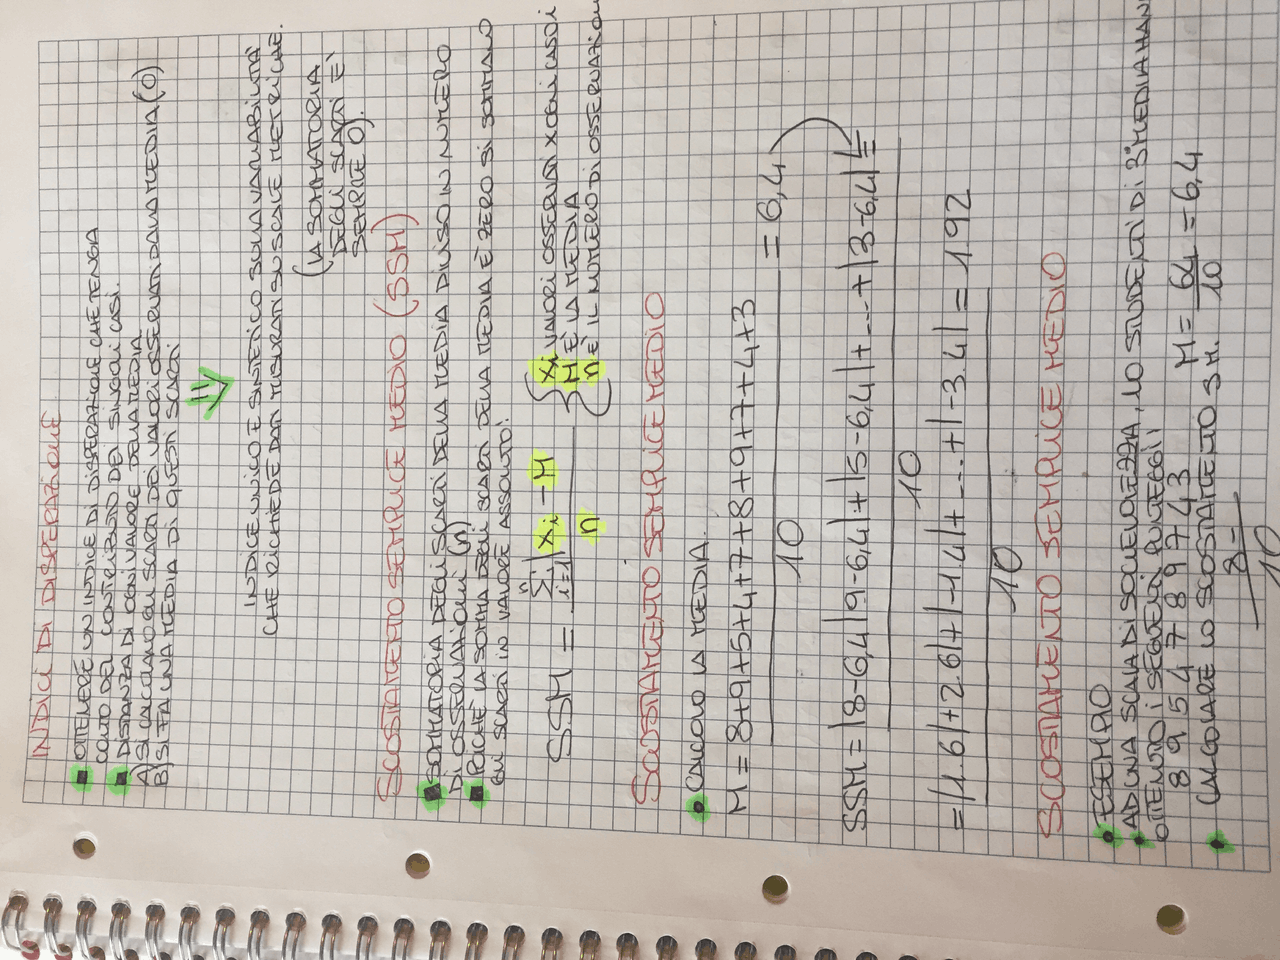 INDICI DI DISPERAZIONE
OTTENERE UN INDICE DI DISPERAZIONE CHE TENGA
CONTO DEL CONTRIBUTO DEI SINGOLI CASI.
DISTANZA DI OGNI VALORE DALLA MEDIA
A) SI CALCOLANO GLI SCARTI DEI VALORI OSSERVATI DALLA MEDIA (0)
B) SI FA UNA MEDIA DI QUESTI SCARTI
INDICE UNICO E SINTETICO SULLA VARIABILITÀ
CHE RICHIEDE DATI MISURATI SU SCALE METRICHE.
(LA SOMMATORIA
DEGLI SCARTI È
SEMPRE 0).
SCOSTAMENTO SEMPLICE MEDIO (SSM)
SOMMATORIA DEGLI SCARTI DELLA MEDIA DIVISO IN NUMERO
DI OSSERVAZIONI (n)
POICHÉ LA SOMMA DEGLI SCARTI DELLA MEDIA È ZERO SI SOMMANO
GLI SCARTI IN VALORE ASSOLUTO!
SSM = n Σ i=1 | xi - M
n
xi VALORI OSSERVATI X OGNI CASO i
M È LA MEDIA
n È IL NUMERO DI OSSERVAZIONI
SCOSTAMENTO SEMPLICE MEDIO
CALCOLO LA MEDIA.
M = 8+9+5+4+7+8+9+7+4+3 = 6,4
10
SSM = |8-6,4|9-6,4|+|5-6,4|+...+|3-6,4| =
10
= |1.6|+2.6|+|-1.4|+...+|-3.4| = 1.92
10
SCOSTAMENTO SEMPLICE MEDIO
ESEMPIO
AD UNA SCALA DI SCIEVOLEZZA, 10 STUDENTI DI 3ª MEDIA HANNO
OTTENUTO I SEGUENTI PUNTEGGI:
8 9 5 4 7 8 9 7 4 3 M = 64 = 6,4
10
CALCOLARE LO SCOSTAMENTO S M.
8-
10